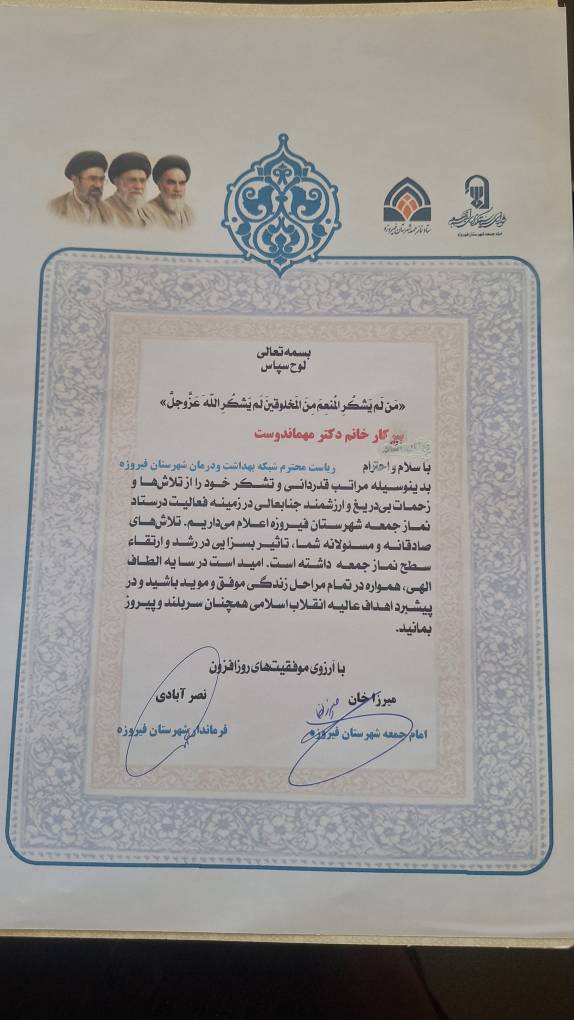 ستاد نماز جمعه شهرستان فیروزه
ستاد نماز جمعه شهرستان فیروزه
بسمه تعالی
لوح سپاس
«مَن لَم یَشکُرِ المُنعِمَ مِنَ المَخلوقینَ لَم یَشکُرِ اللّهَ عَزَّوجلَّ»
کار خانم دکتر مهماندوست
ریاست محترم شبکه بهداشت و درمان شهرستان فیروزه
با سلام و احترام
بدینوسیله مراتب قدردانی و تشکر خود را از تلاش‌ها و
زحمات بی‌دریغ و ارزشمند جنابعالی در زمینه فعالیت در ستاد
نماز جمعه شهرستان فیروزه اعلام می‌داریم. تلاش‌های
صادقانه و مسئولانه شما، تاثیر بسزایی در رشد و ارتقاء
سطح نماز جمعه داشته است. امید است در سایه الطاف
الهی، همواره در تمام مراحل زندگی موفق و موید باشید و در
پیشبرد اهداف عالیه انقلاب اسلامی همچنان سربلند و پیروز
بمانید.
با آرزوی موفقیت‌های روزافزون
میرزاخان
امام جمعه شهرستان فیروزه
نصرآبادی
فرماندار شهرستان فیروزه